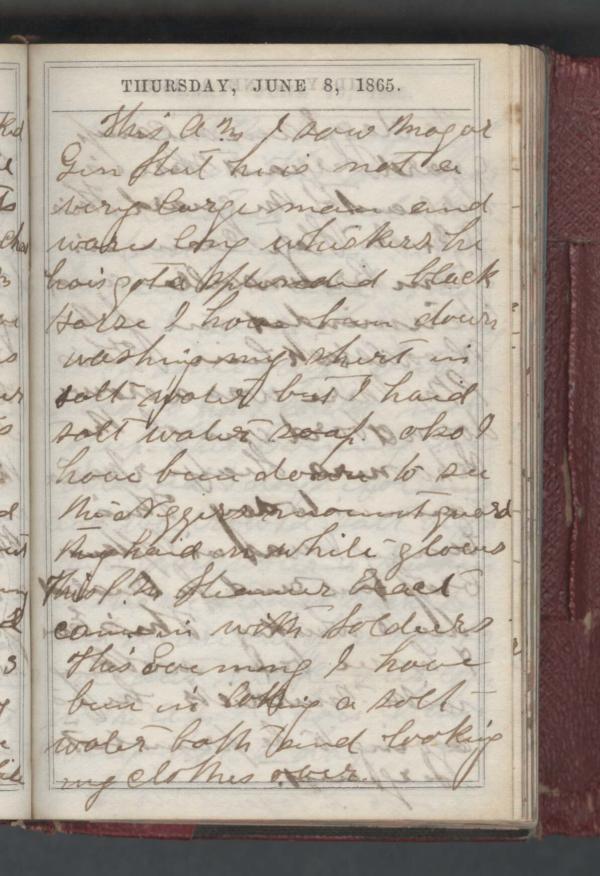 THURSDAY, JUNE 8, 1865.
This A M I saw Magor
Gen he is not a
very large man and
wars long whiskers he
has got a splended black
Horse I have ben down
washing my shirt in
salt water but I haid
salt water soap also I
have bun down to see
the mount guard
they haid on while gloves
This P M Steamer Exact
came in with Soldiers
This Evening I have
bun in a solt
water bath and looking
my clothes over.